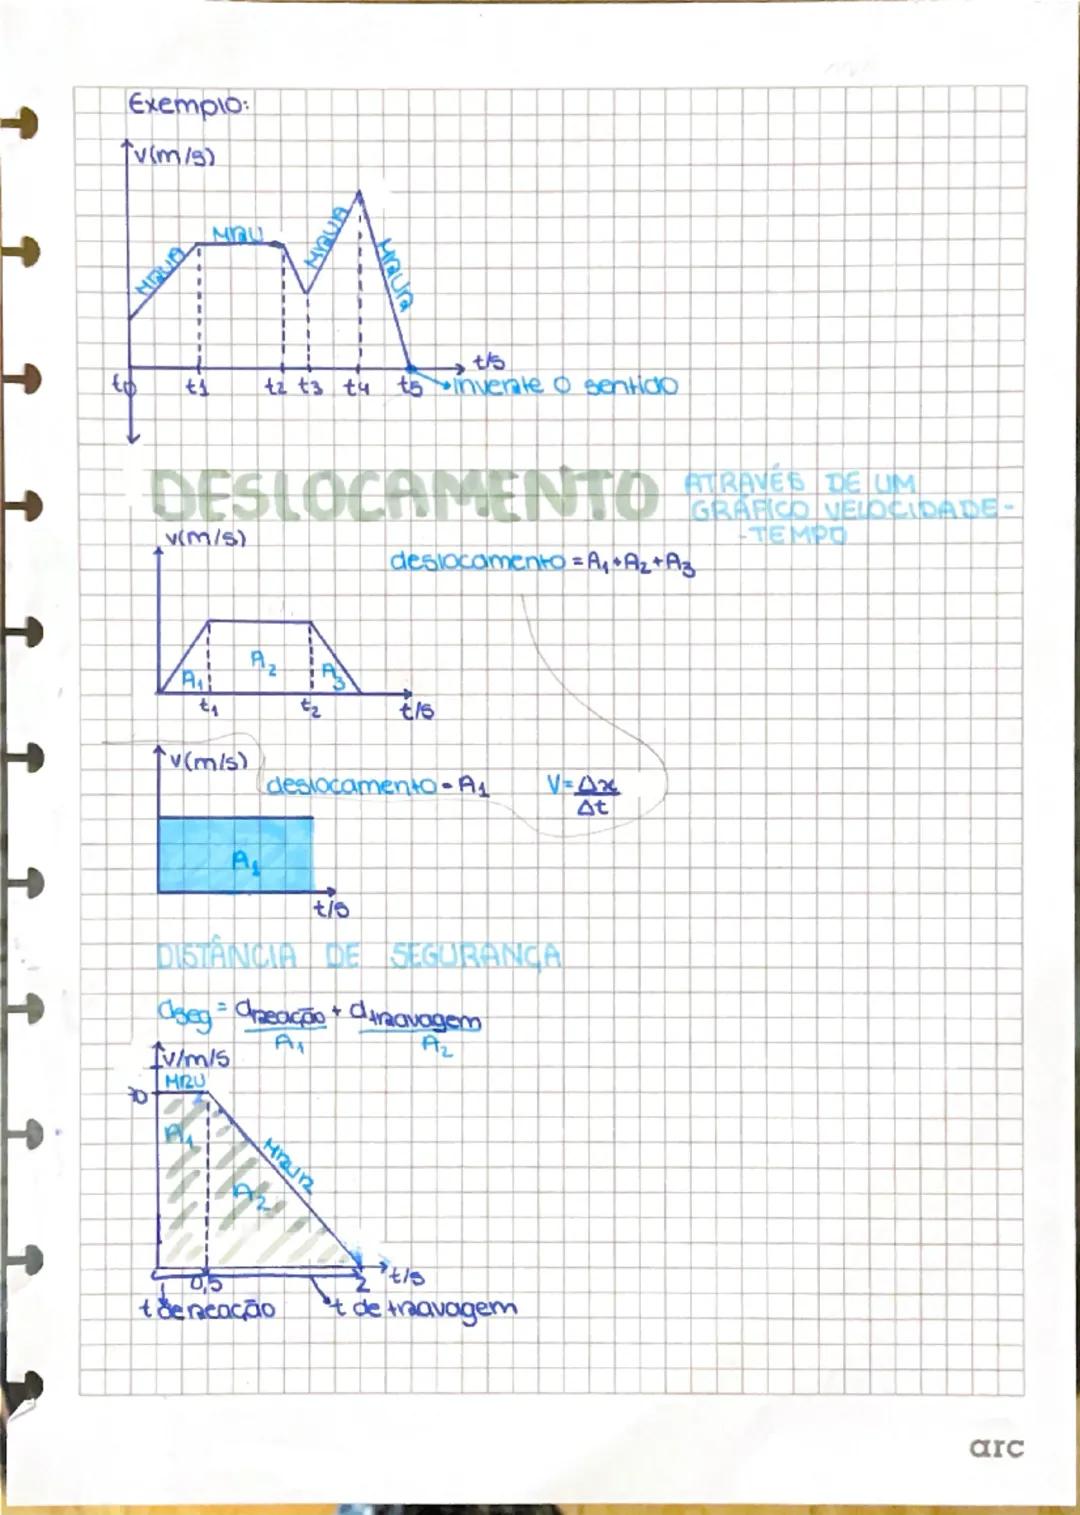 Exemplo:
v(m/s)
MRUA
MRU
MRUA
MRUR
t/s
t0 t1 t2 t3 t4 t5
inverte o sentido
DESLOCAMENTO
ATRAVÉS DE UM
GRÁFICO VELOCIDADE-
-TEMPO
v(m/s)
deslocamento = A1 + A2 + A3
A1 A2 A3
t1 t2 t/s
v(m/s)
deslocamento = A1 V = Δx
Δt
A1
t/s
DISTÂNCIA DE SEGURANÇA
dseg = dreação + dtravagem
A1 A2
v/m/s
MRU
A1
MRUR
A2
0,5 2 t/s
t de reação t de travagem
arc